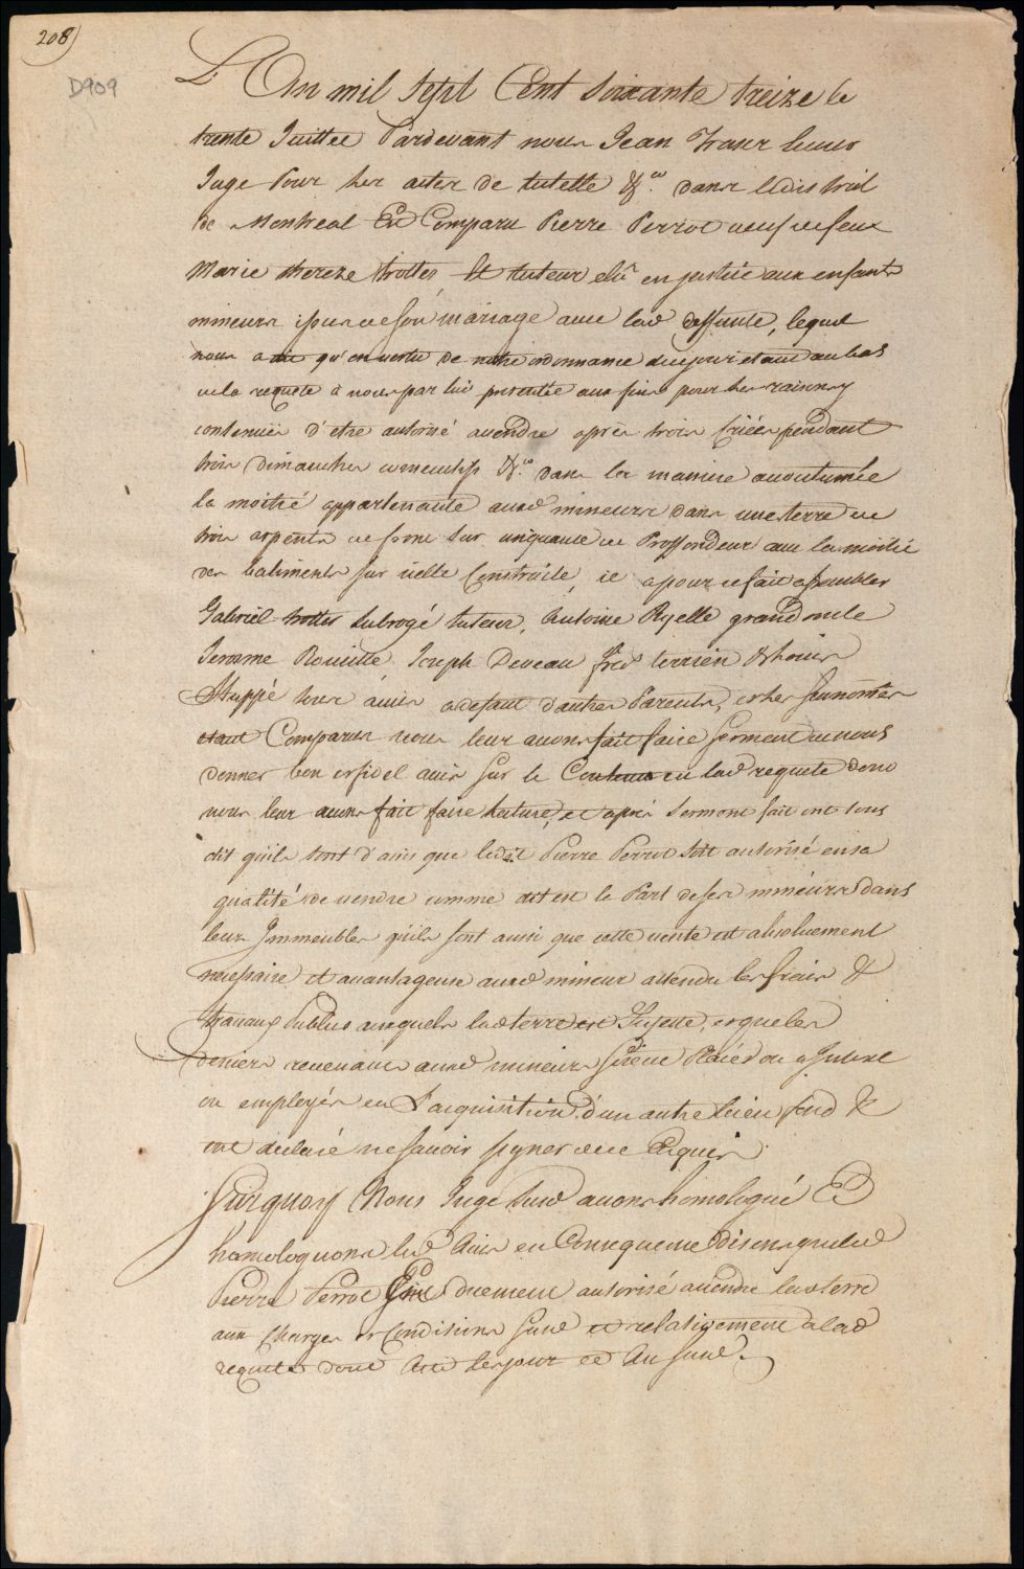 208)
D909
L'An mil Sept Cent Soixante treize le
trente Juillet Pardevant nous Jean Fraser
Juge Pour les actes de tutelle &ca. dans le district
de Montreal Est Comparu Pierre Perrot veuf de feue
Marie thereze trottes, Et tuteur elû en justice aux enfants
mineurs issus de son mariage avec lad deffunte, lequel
nous a dit qu'en vertu de notre ordonnance de ce jour etant au bas
de la requete à nous par lui presentée aux fins pour les raisons y
contenuës d'etre autorisé a vendre après trois Criées pendant
trois Dimanches consecutifs &ca. dans la maniere accoutumée
la moitié appartenante auxd mineurs dans une terre de
trois arpents de front sur cinquante de Proffondeur avec la moitié
des batiments sur icelle Construits, il a pour ce fait assembler
Gabriel trottes subrogé tuteur, Antoine oncle
Jerosme Joseph Deveau fred terrien &
tous amis a defaut d'autres Parents, et les susnommés
etant Comparus nous leur avons fait faire serment de nous
donner bon et fidel avis sur le Contenu en lad requete dont
nous leur avons fait faire lecture, et après serment fait ont tous
dit qu'ils sont d'avis que ledit Pierre Perrot soit autorisé en sa
qualité de vendre comme dit est la Part de ses mineurs dans
leurs Immeubles qu'ils sont aussi que cette vente est absoluement
necessaire et avantageuse auxd mineurs attendu les frais &
travaux Publics auxquels lad terre est Sujette, et que les
deniers revenants auxd mineurs soient Placés ou a Interet
ou employés en L'acquisition d'un autre bien fond &
ont declaré ne savoir signer de ce Enquis
Surquoy Nous Juge susd avons homologué Et
homologuons led Avis en Consequence Disons que led
Pierre Perrot Est duement autorisé a vendre lad terre
aux Charges et Conditions susd et relativement a lad
requete dont Acte les jour et An susd.